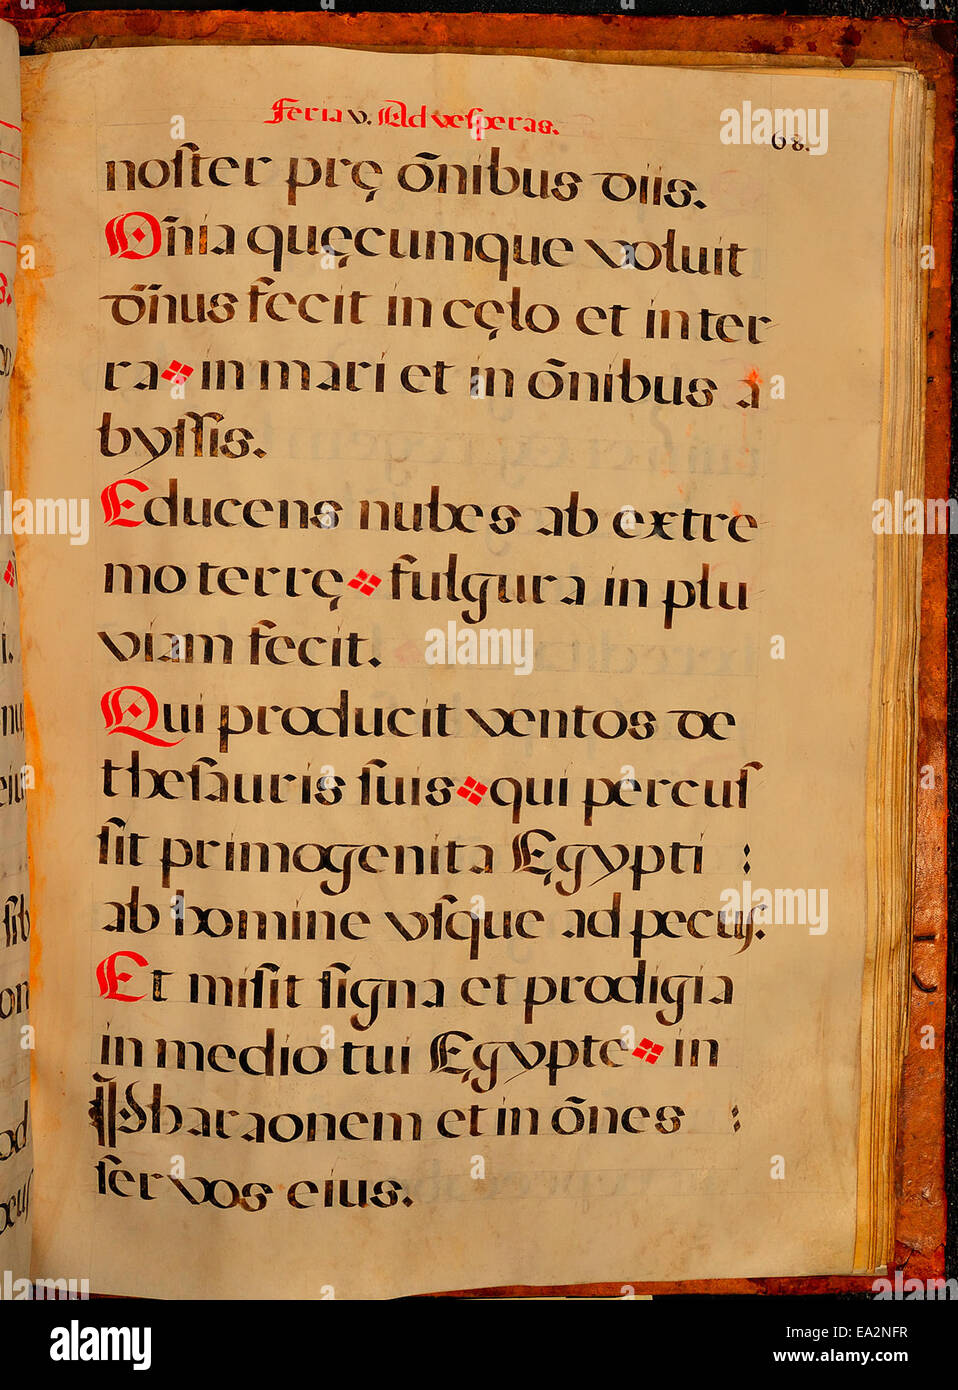 Feria v. Ad vesperas.
68.
noſter prę õnibus diis.
Om̃ia quęcumque voluit
dñus fecit in cęlo et in ter
ra in mari et in õnibus a
byſſis.
Educens nubes ab extre
mo terrę fulgura in plu
viam fecit.
Qui producit ventos de
theſauris ſuis qui percuſ
ſit primogenita Egypti :
ab homine vſque ad pecus.
Et miſit ſigna et prodigia
in medio tui Egypte in
Pharaonem et in õnes :
ſervos eius.
alamy
alamy stock photo
EA2NFR
www.alamy.com